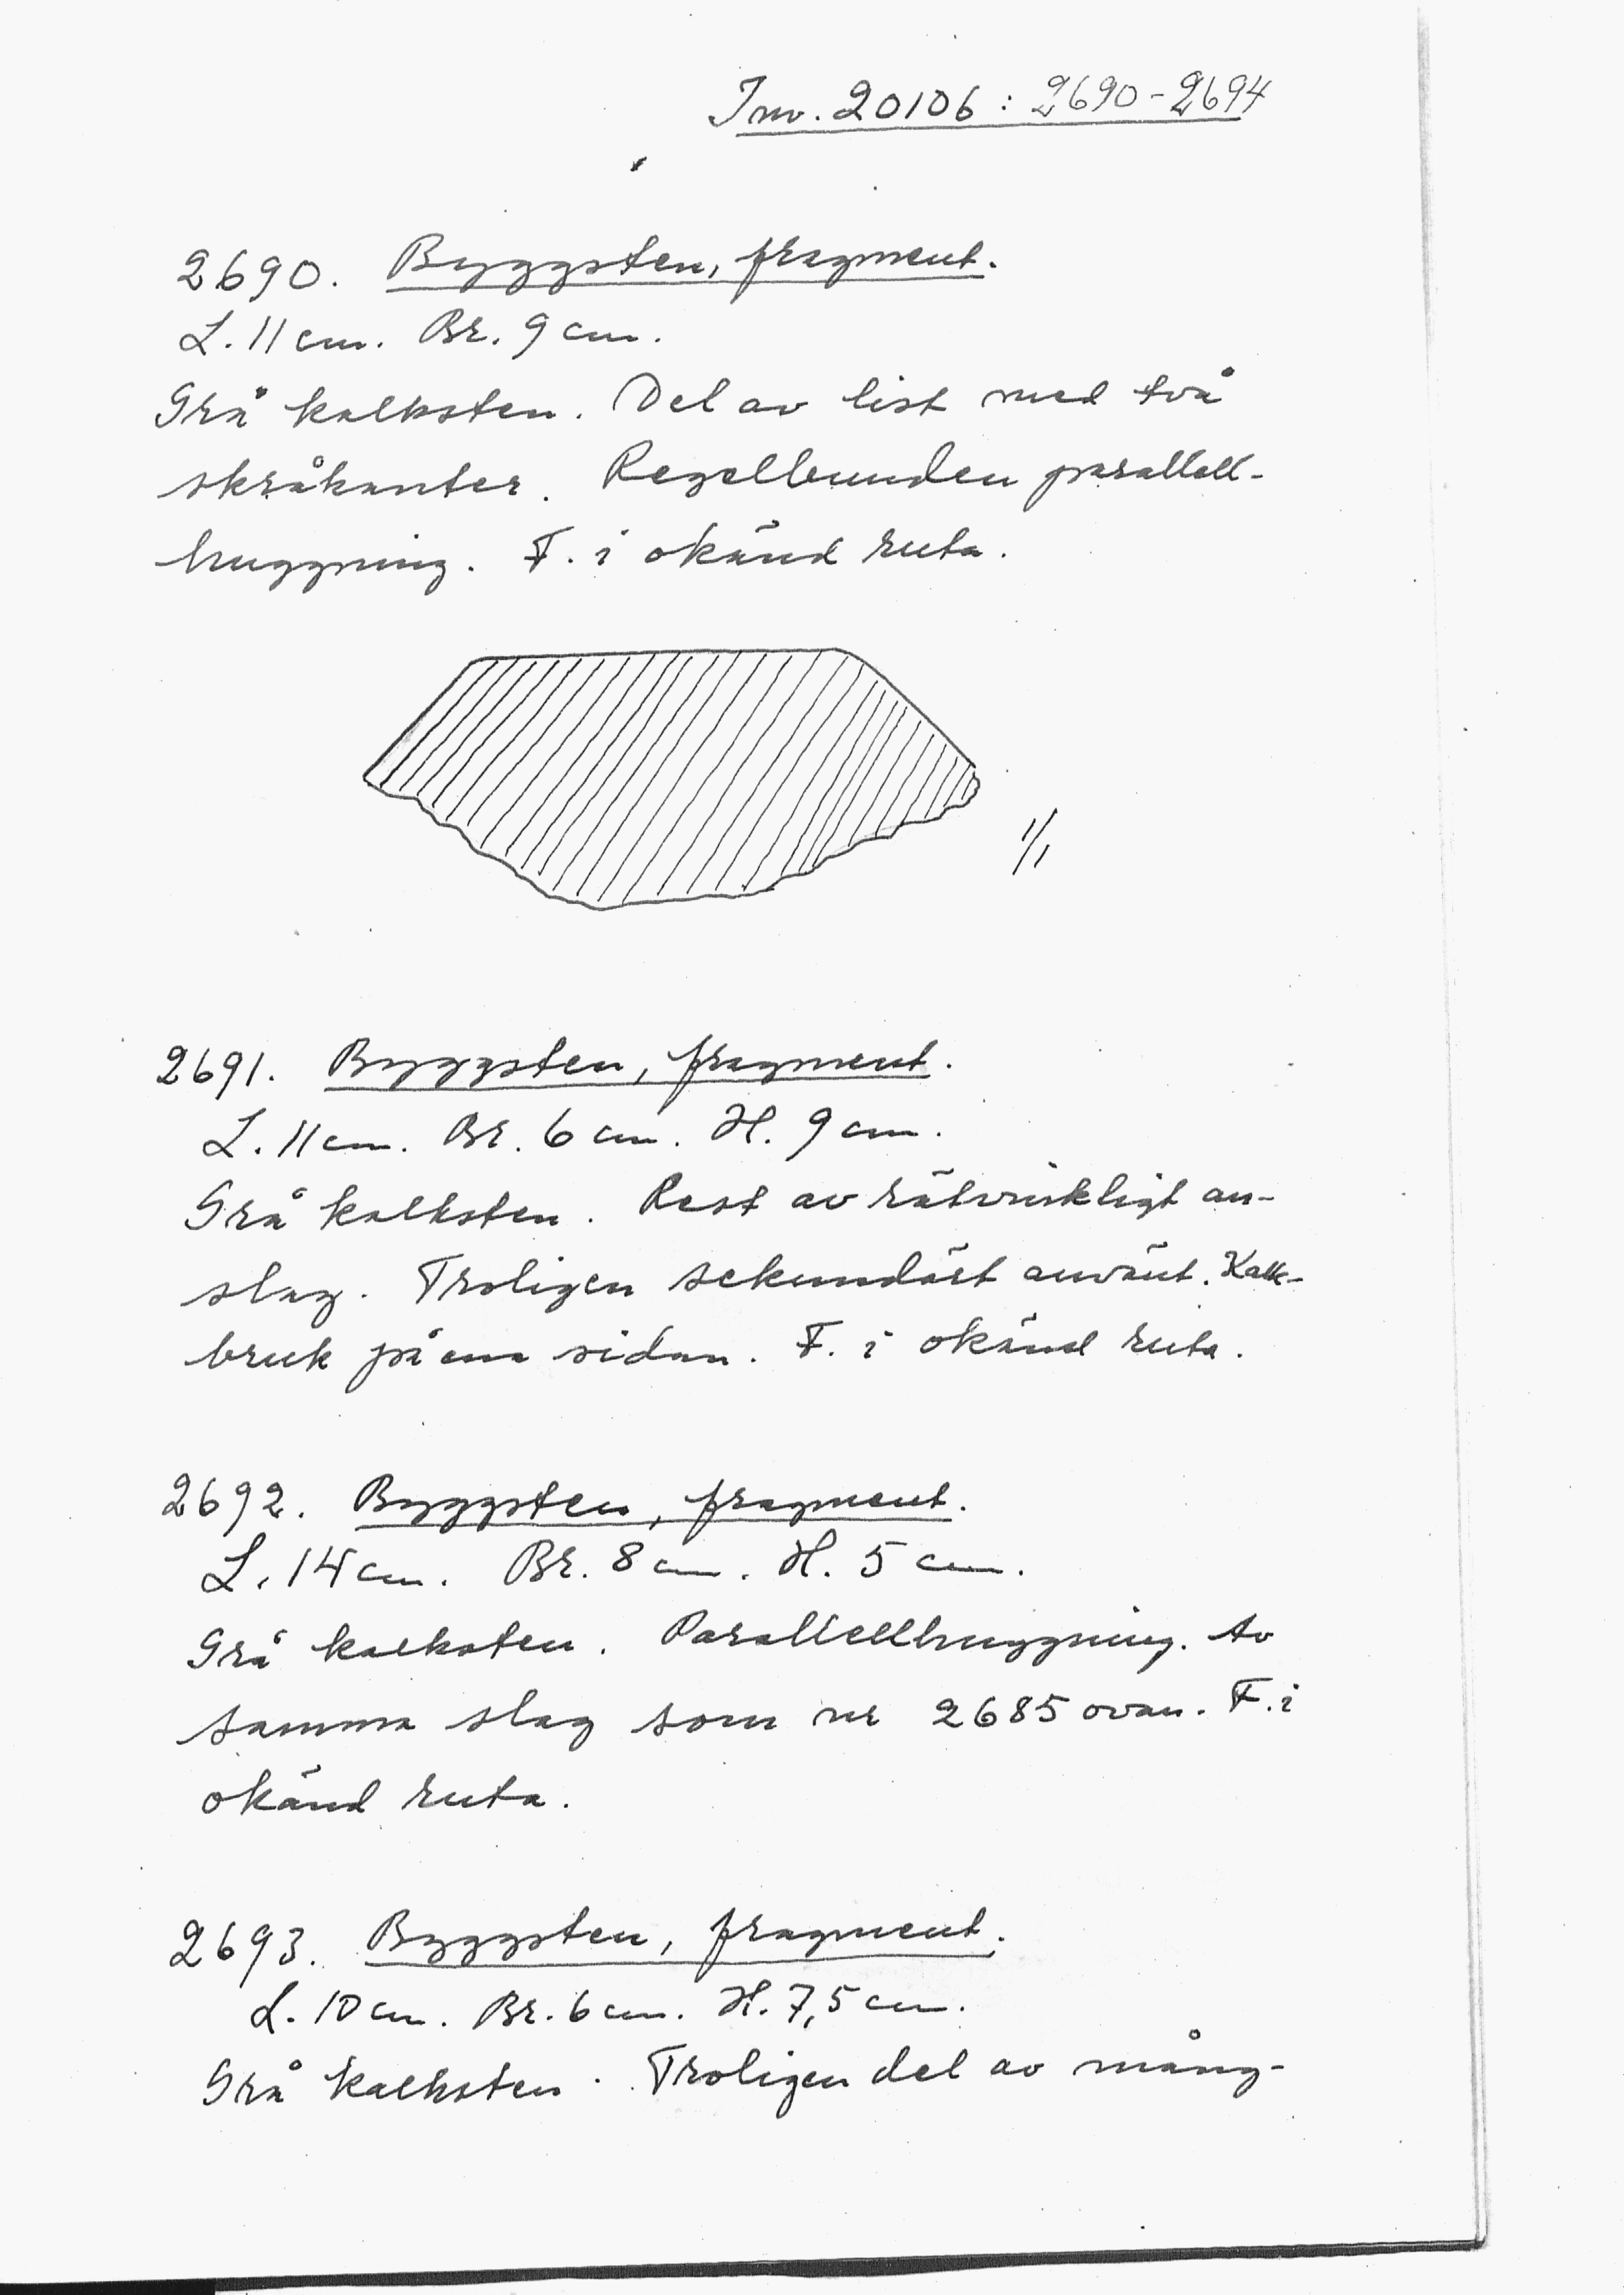 Inv. 20106 : 2690-2694
2690. Byggsten, fragment.
L. 11 cm. Br. 9 cm.
Grå kalksten. Del av list med två
skråkanter. Regelbunden parallell-
huggning. F. i okänd ruta.
1/1
2691. Byggsten, fragment.
L. 11 cm. Br. 6 cm. H. 9 cm.
Grå kalksten. Rest av rätvinkligt an-
slag. Troligen sekundärt använt. Kalk-
bruk på ena sidan. F. i okänd ruta.
2692. Byggsten, fragment.
L. 14 cm. Br. 8 cm. H. 5 cm.
Grå kalksten. Parallellhuggning. Av
samma slag som nr 2685 ovan. F. i
okänd ruta.
2693. Byggsten, fragment.
L. 10 cm. Br. 6 cm. H. 7,5 cm.
Grå kalksten. Troligen del av mång-